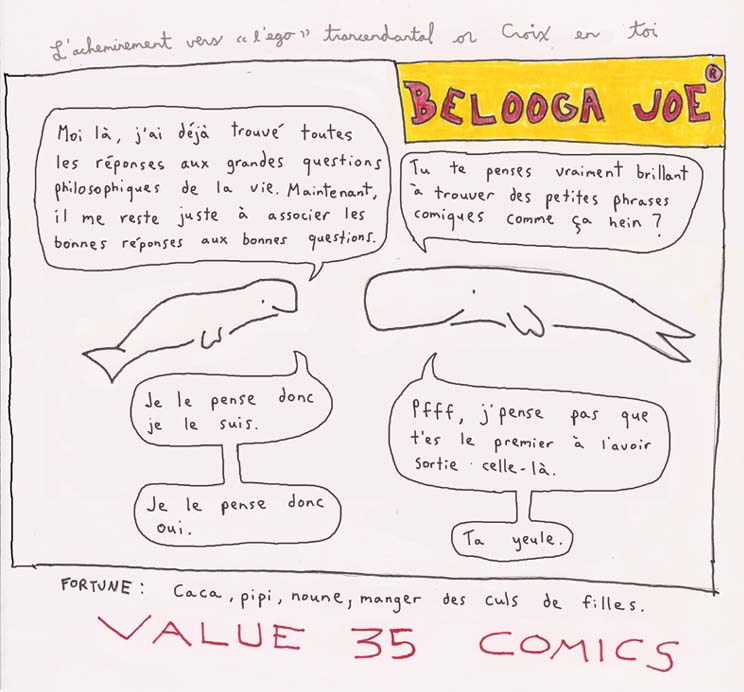 L'acheminement vers "l'ego" trancendantal or Croix en toi
BELOOGA JOE®
Moi là, j'ai déjà trouvé toutes
les réponses aux grandes questions
philosophiques de la vie. Maintenant,
il me reste juste à associer les
bonnes réponses aux bonnes questions.
Tu te penses vraiment brillant
à trouver des petites phrases
comiques comme ça hein ?
Je le pense donc
je le suis.
Je le pense donc
oui.
Pfff, j'pense pas que
t'es le premier à l'avoir
sortie celle-là.
Ta yeule.
FORTUNE : Caca, pipi, noune, manger des culs de filles.
VALUE 35 COMICS